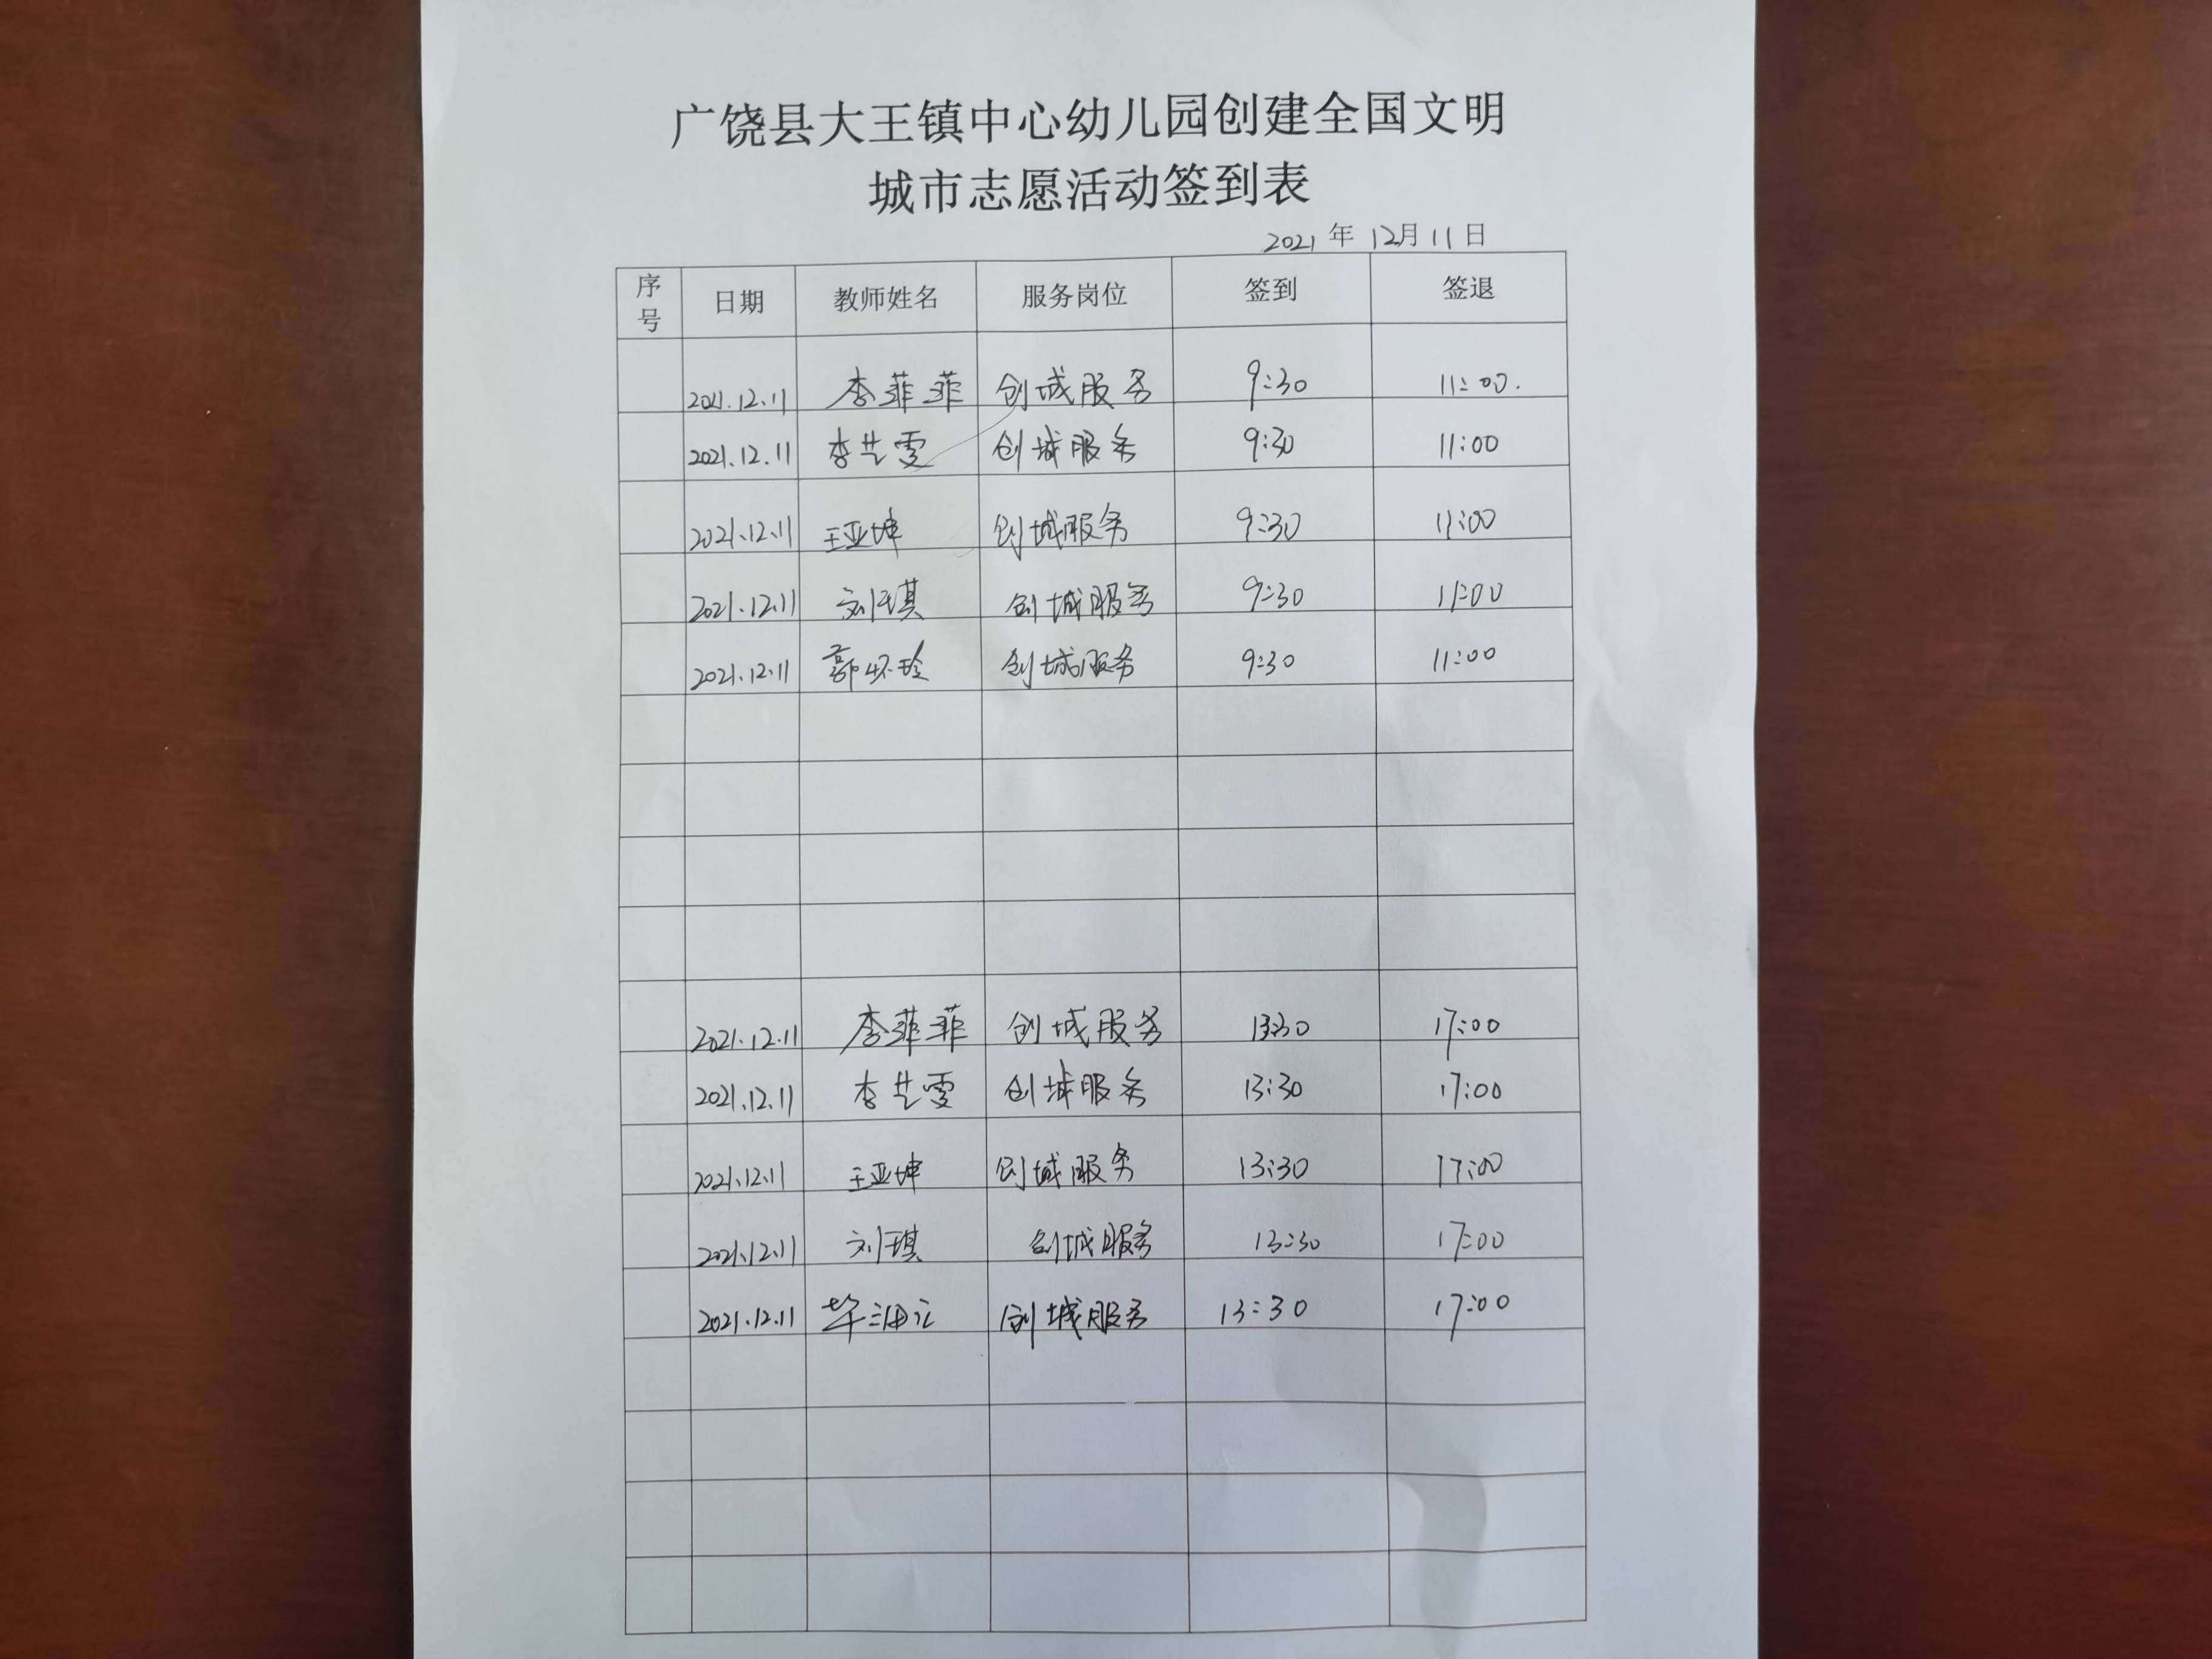 广饶县大王镇中心幼儿园创建全国文明
城市志愿活动签到表
2021 年 12月 11 日
序号 日期 教师姓名 服务岗位 签到 签退
2021.12.11 李菲菲 创城服务 9:30 11:00.
2021.12.11 李芸雯 创城服务 9:30 11:00
2021.12.11 王亚坤 创城服务 9:30 11:00
2021.12.11 刘琪 创城服务 9:30 11:00
2021.12.11 郭怀玲 创城服务 9:30 11:00
2021.12.11 李菲菲 创城服务 13:30 17:00
2021.12.11 李芸雯 创城服务 13:30 17:00
2021.12.11 王亚坤 创城服务 13:30 17:00
2021.12.11 刘琪 创城服务 13:30 17:00
2021.12.11 创城服务 13:30 17:00